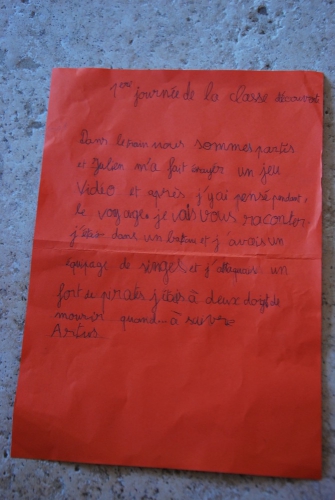 1ère journée de la classe découverte
Dans le train nous sommes partis
et Julien m'a fait essayer un jeu
vidéo et après j'y ai pensé pendant,
le voyage je vais vous raconter
j'étais dans un bateau et j'avais un
équipage de singes et j'attaquais un
fort de pirates j'étais à deux doigt de
mourir quand... à suivre
Artus